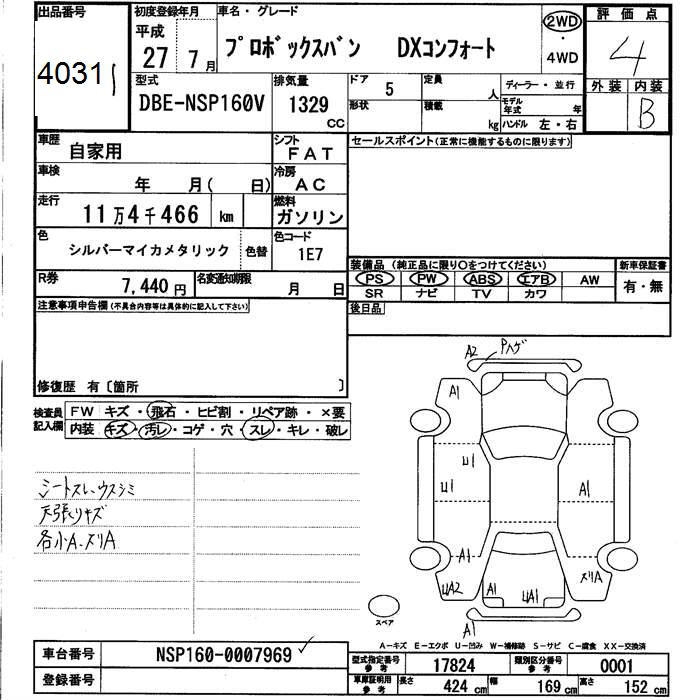 出品番号 初度登録年月 車名・グレード 評価点
4031
平成 27 年 7 月
プロボックスバン DXコンフォート
2WD ・ 4WD
4
外装 内装
B
型式 DBE-NSP160V
排気量 1329 CC
ドア 5
形状
定員 人
積載 kg
ディーラー・並行
モデル年式 年
ハンドル 左・右
車歴 自家用
シフト FAT
セールスポイント(正常に機能するものに限ります)
車検 年 月( 日)
冷房 AC
走行 11万4千466 km
燃料 ガソリン
色 シルバーマイカメタリック 色替
色コード 1E7
R券 7,440円
名変通知期限 月 日
装備品 (純正品に限り○をつけてください) 新車保証書
PS PW ABS エアB AW 有・無
SR ナビ TV カワ
後日品
注意事項申告欄(不具合内容等は具体的に記入して下さい)
修復歴 有〔箇所 〕
検査員記入欄
FW キズ・飛石・ヒビ割・リペア跡・×要
内装 キズ・汚レ・コゲ・穴・スレ・キレ・破レ
シートスレ、ウスシミ
天張りキズ
各小A.ヌリA
A2 Pハゲ
A1
U1
U1 A1
A1
UA2 A1 UA1 ヌリA
A1
スペア
A-キズ E-エクボ U-凹み W-補修跡 S-サビ C-腐食 XX-交換済
車台番号 NSP160-0007969
登録番号
型式指定番号 参考 17824 類別区分番号 参考 0001
車庫証明用 参考 長さ 424 cm 幅 169 cm 高さ 152 cm